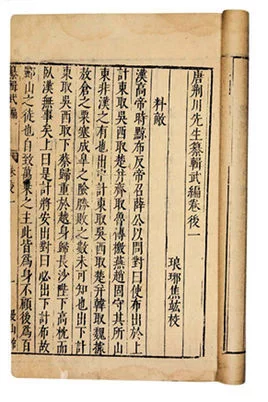 唐荊川先生纂輯武編卷後一
琅琊焦竑校
料敵
漢高帝時黥布反帝召薛公以問對曰使布出於上
計東取吳西取楚并齊取魯傳檄燕趙固守其所山
東非漢之有也出中計東取吳西取楚并韓取魏據
敖倉之粟塞成皋之險勝敗之數未可知也出下計
東取吳西取下蔡歸重於越身歸長沙陛下高枕而
臥漢無事矣上曰是計將安出對曰必出下計布故
酈山之徒也自致萬乘之主此皆為身不顧後為百
纂輯武編